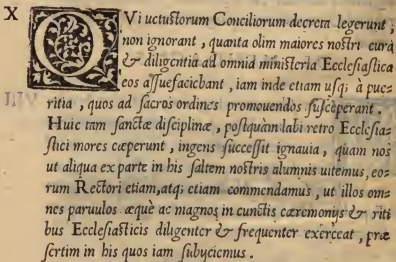 X
QVi uetustorum Conciliorum decreta legerunt,
non ignorant, quanta olim maiores nostri cura
& diligentia ad omnia ministeria Ecclesiastica
eos assuefaciebant, iam inde etiam usq; à pue-
ritia, quos ad sacros ordines promouendos susceperant.
Huic tam sanctæ disciplinæ, postquàm labi retro Ecclesia-
stici mores cæperunt, ingens successit ignauia, quam nos
ut aliqua ex parte in his saltem nostris alumnis uitemus, eo-
rum Rectori etiam, atq; etiam commendamus, ut illos om-
nes paruulos æquè ac magnos in cunctis cæremonijs & riti
bus Ecclesiasticis diligenter & frequenter exerceat, præ
sertim in his quos iam subijciemus.